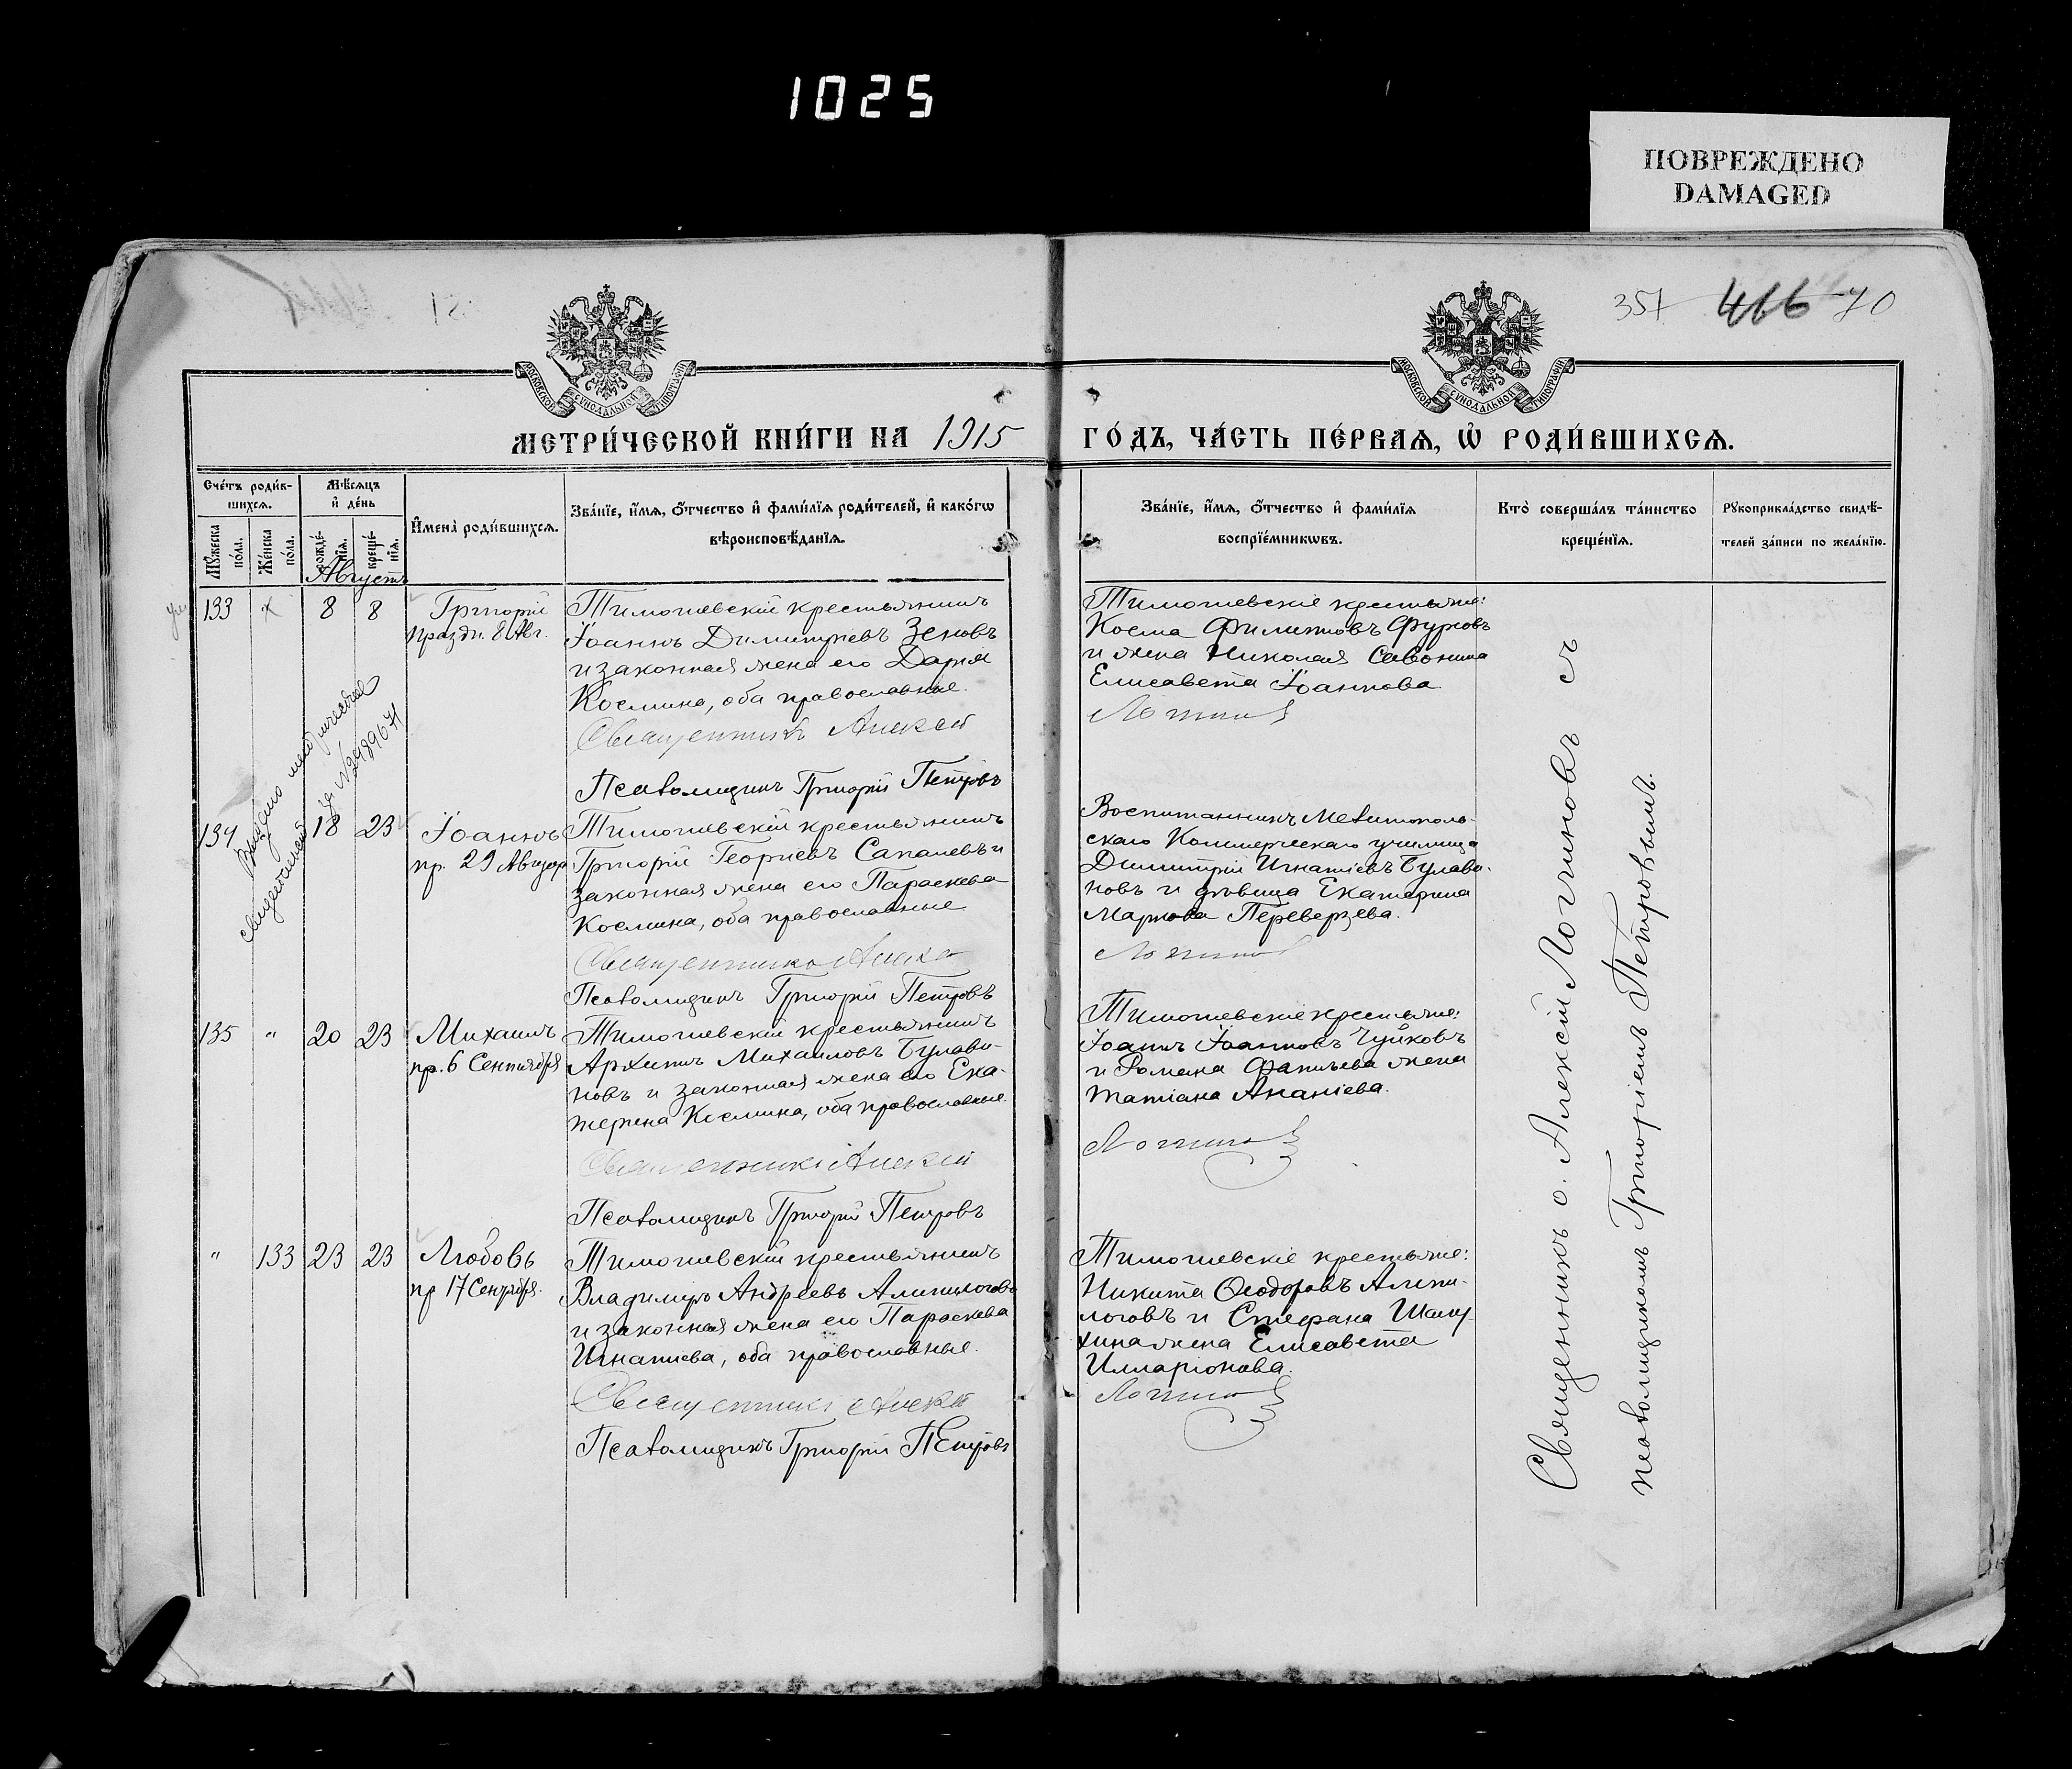 1025
ПОВРЕЖДЕНО
DAMAGED
357 466 70
МОСКОВСКОЙ СѴНОДАЛЬНОЙ ТИПОГРАФІИ
МОСКОВСКОЙ СѴНОДАЛЬНОЙ ТИПОГРАФІИ
МЕТРИ́ЧЕСКОЙ КНИ́ГИ НА 1915 ГО́ДЪ, ЧА́СТЬ ПЕ́РВАѦ, Ѡ҆ РОДИ́ВШИХСѦ.
Сче́тъ роди́в-
шихсѧ.
Мꙋ́жеска по́ла.
Же́нска по́ла.
Мѣ́сѧцъ
и҆ де́нь
рожде́-нїѧ.
креще́-нїѧ.
И҆мена̀ роди́вшихсѧ.
Зва́нїе, и҆́мѧ, ѻ҆́тчество и҆ фами́лїѧ роди́телей, и҆ како́гѡ
вѣроисповѣ́данїѧ.
Зва́нїе, и҆́мѧ, ѻ҆́тчество и҆ фами́лїѧ
воспрїе́мникѡвъ.
Кто̀ соверша́лъ та́инство
креще́нїѧ.
Рꙋкоприкла́дство свидѣ́-
телей за́писи по жела́нїю.
Августъ
133 8 8
Григорій
праздн. 8 Авг.
Тимошевскій крестьянинъ
Іоаннъ Димитріевъ Зеновъ
и законная жена его Дарія
Космина, оба православные.
Священникъ Алексій
Псаломщикъ Григорій Петровъ
Тимошевскіе крестьяне:
Косма Филипповъ Фурсовъ
и жена Николая Савонина
Елисавета Іоаннова
Логинов
Выдано метрическое
свидетельство
за №
134 18 23
Іоаннъ
пр. 29 Августа
Тимошевскій крестьянинъ
Григорій Георгіевъ Сапачевъ и
законная жена его Параскева
Космина, оба православные
Священникъ Алексій
Псаломщикъ Григорій Петровъ
Воспитанникъ Мелитополь-
скаго Коммерческаго училища
Димитрій Игнатіевъ Булави-
новъ и дѣвица Екатерина
Маркова Переверзева.
Логинов
135 " 20 23
Михаилъ
пр. 6 Сентября
Тимошевскій крестьянинъ
Архипъ Михаиловъ Булави-
новъ и законная жена его Ека-
терина Космина, оба православные.
Священникъ Алексій
Псаломщикъ Григорій Петровъ
Тимошевскіе крестьяне:
Іоаннъ Іоанновъ Чуйковъ
и Романа Фатьева жена
Татіана Ананіева.
Логинов
" 133 23 23
Любовь
пр 17 Сентября.
Тимошевскій крестьянинъ
Владиміръ Андреевъ Алпилоговъ
и законная жена его Параскева
Игнатиева, оба православные.
Священникъ Алексій
Псаломщикъ Григорій Петровъ
Тимошевскіе крестьяне:
Никита Ѳеодоровъ Алпи-
логовъ и Стефана Шалу-
хина жена Елисавета
Илларіонова.
Логинов
Священникъ о. Алексій Логиновъ съ
псаломщикомъ Григоріемъ Петровымъ.